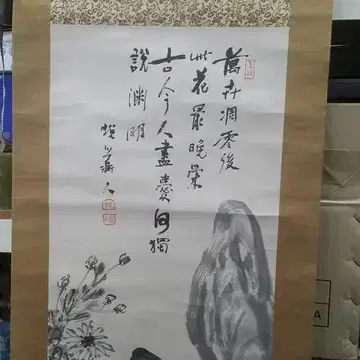 萬卉凋零後
此花最晚榮
古今人盡愛何獨
說淵明